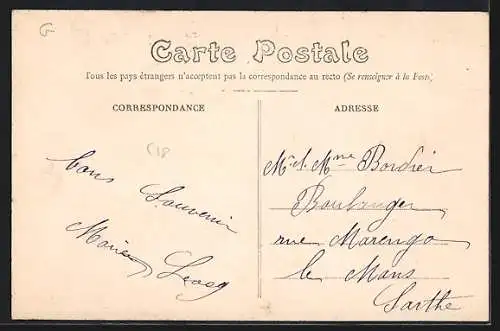 Carte Postale
Tous les pays étrangers n'acceptent pas la correspondance au recto (Se renseigner à la Poste)
CORRESPONDANCE
ADRESSE
C18
bons Souvenir
Mr. & Mme Bordier
Boulanger
rue Marengo
le Mans
Sarthe